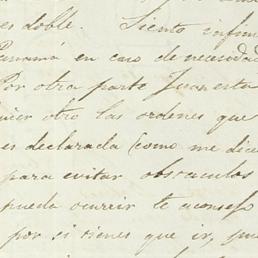 es doble. Siento infin
Panamá en caso de necesidad
Por otra parte Juan esta
uier otro las ordenes que
es declarada (como me dice
para evitar obstaculos
pueda ocurrir te aconsejo
por si tienes que ir, pu